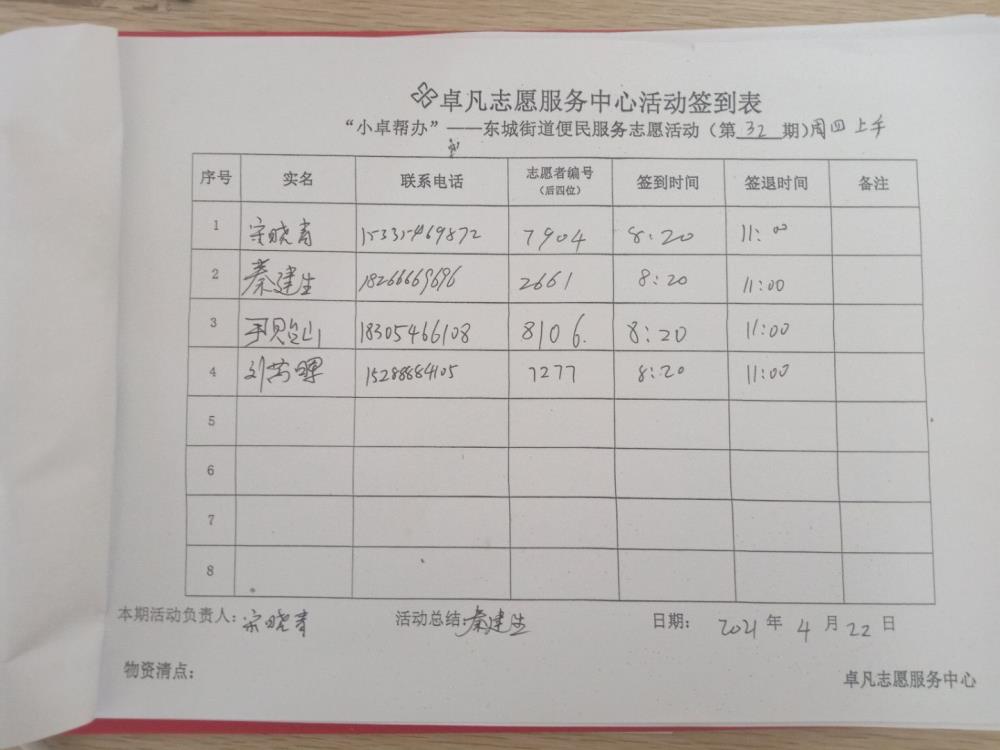 卓凡志愿服务中心活动签到表
“小卓帮办”——东城街道便民服务志愿活动（第32期）周四上午
序号 实名 联系电话 志愿者编号（后四位） 签到时间 签退时间 备注
1 宋晓青 15335469872 7904 8:20 11:00
2 秦建生 18266669696 2661 8:20 11:00
3 18305466108 8106. 8:20 11:00
4 刘 15288884105 7277 8:20 11:00
5
6
7
8
本期活动负责人：宋晓青 活动总结：秦建生 日期： 2021 年 4 月 22 日
物资清点：
卓凡志愿服务中心